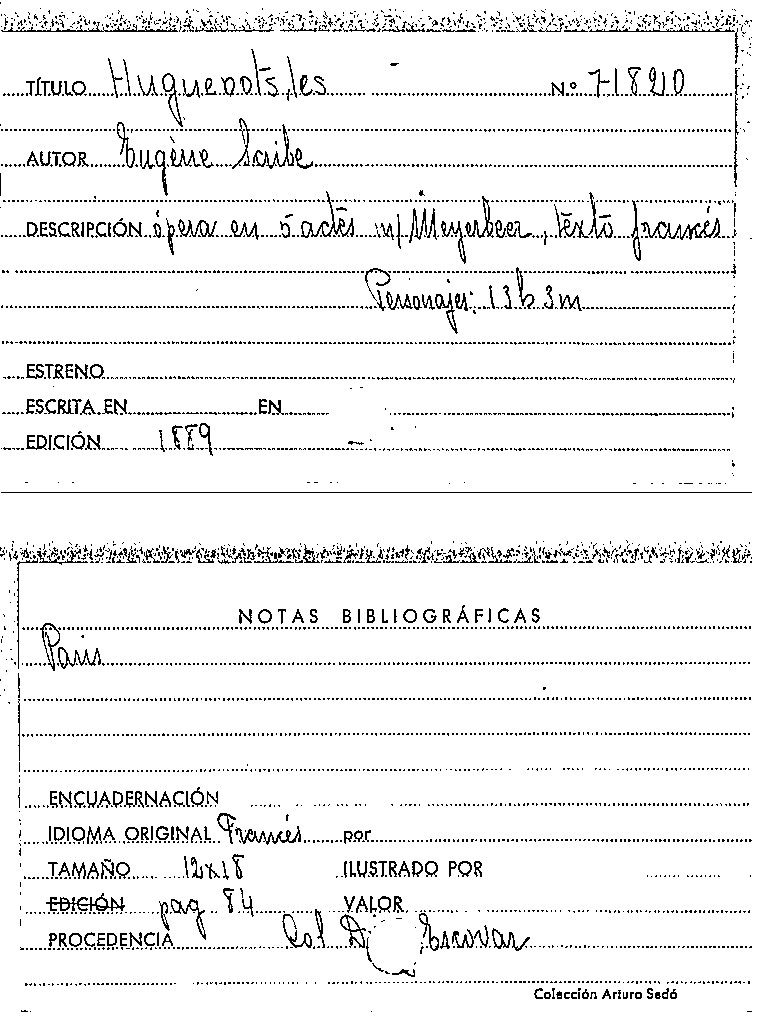 TÍTULO Huguenots, les Nº 71820
AUTOR Eugène Scribe
DESCRIPCIÓN ópera en 5 actes m/ Meyerbeer, texto francés
Personajes: 13 h 3 m
ESTRENO
ESCRITA EN EN
EDICIÓN 1889
NOTAS BIBLIOGRÁFICAS
Paris
ENCUADERNACIÓN
IDIOMA ORIGINAL Francés por
TAMAÑO 12x18 ILUSTRADO POR
EDICIÓN pag 84 VALOR
PROCEDENCIA Col D Escovar
Colección Arturo Sedó